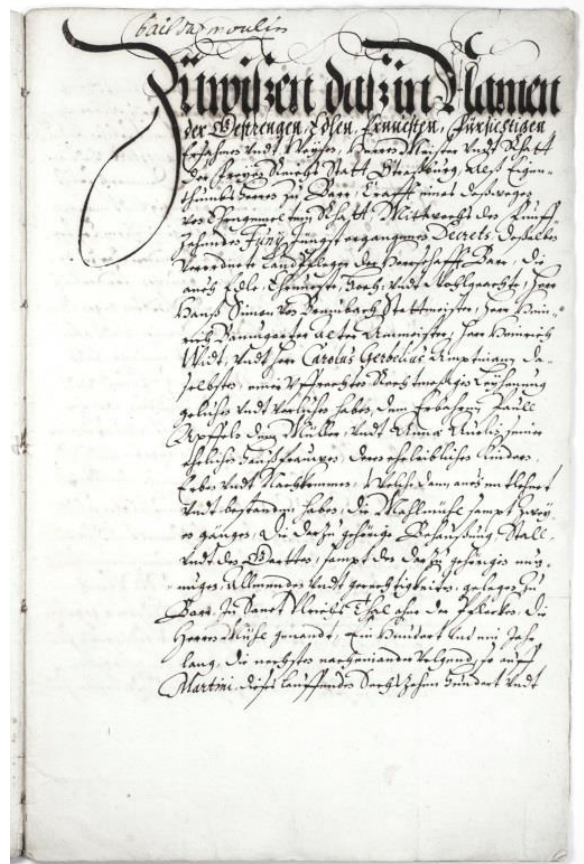 bail du moulin
Zuwißen daß in Namen
der Gestrengen, Edlen, Ernuesten, Fürsichtigen
Ersahmen vndt Weysen, Herren Meister vndt Rhatt
der Freyen Reichs Statt Straßburg, Alß Eigen-
thumbs Herren zu Barr, Crafft eines deßwegen
vor Rhatt, Mittwochs den fünff-
zehenden Juny jüngst ergangenen Decrets, deßhalben
verordnete Landtpfleger der Herrschafft Barr, die
auch Edle, Ehrnueste, Hoch, vndt Wohlgeachte, Herr
Hanß Simon von Stettmeister, Herr Hein-
rich Baumgarter alter Ammeister, Herr Heinrich
vndt Herr Carolus Gerbelius Amptmann da-
selbsten, einer Rechtmeßigen Leyhenung
gelichen vndt verlichen haben, dem Erbahren Paull
Apffeln dem Müller, vndt Anna seiner
ehelichen Haußfrauwen, deren eheleiblichen Kindern,
Erben vndt Nachkommen, Welche dann auch entlehnet
vndt bestanden haben, die Mahlmühl sampt zwey-
en gängen, die darzu gehörige Behausung, Stall,
vndt den Gartten, sampt der darzu gehörigen
Allmenden vndt gerechtigkeiten, gelegen zu
Barr, In Sanct Vlrichs Thal ahn der die
Herren Mühl genandt, Ein Hundert vnd ein Jahr
lang, die nechsten nacheinander volgend, so auff
Martini dieses lauffenden Sechszehen hundert vndt